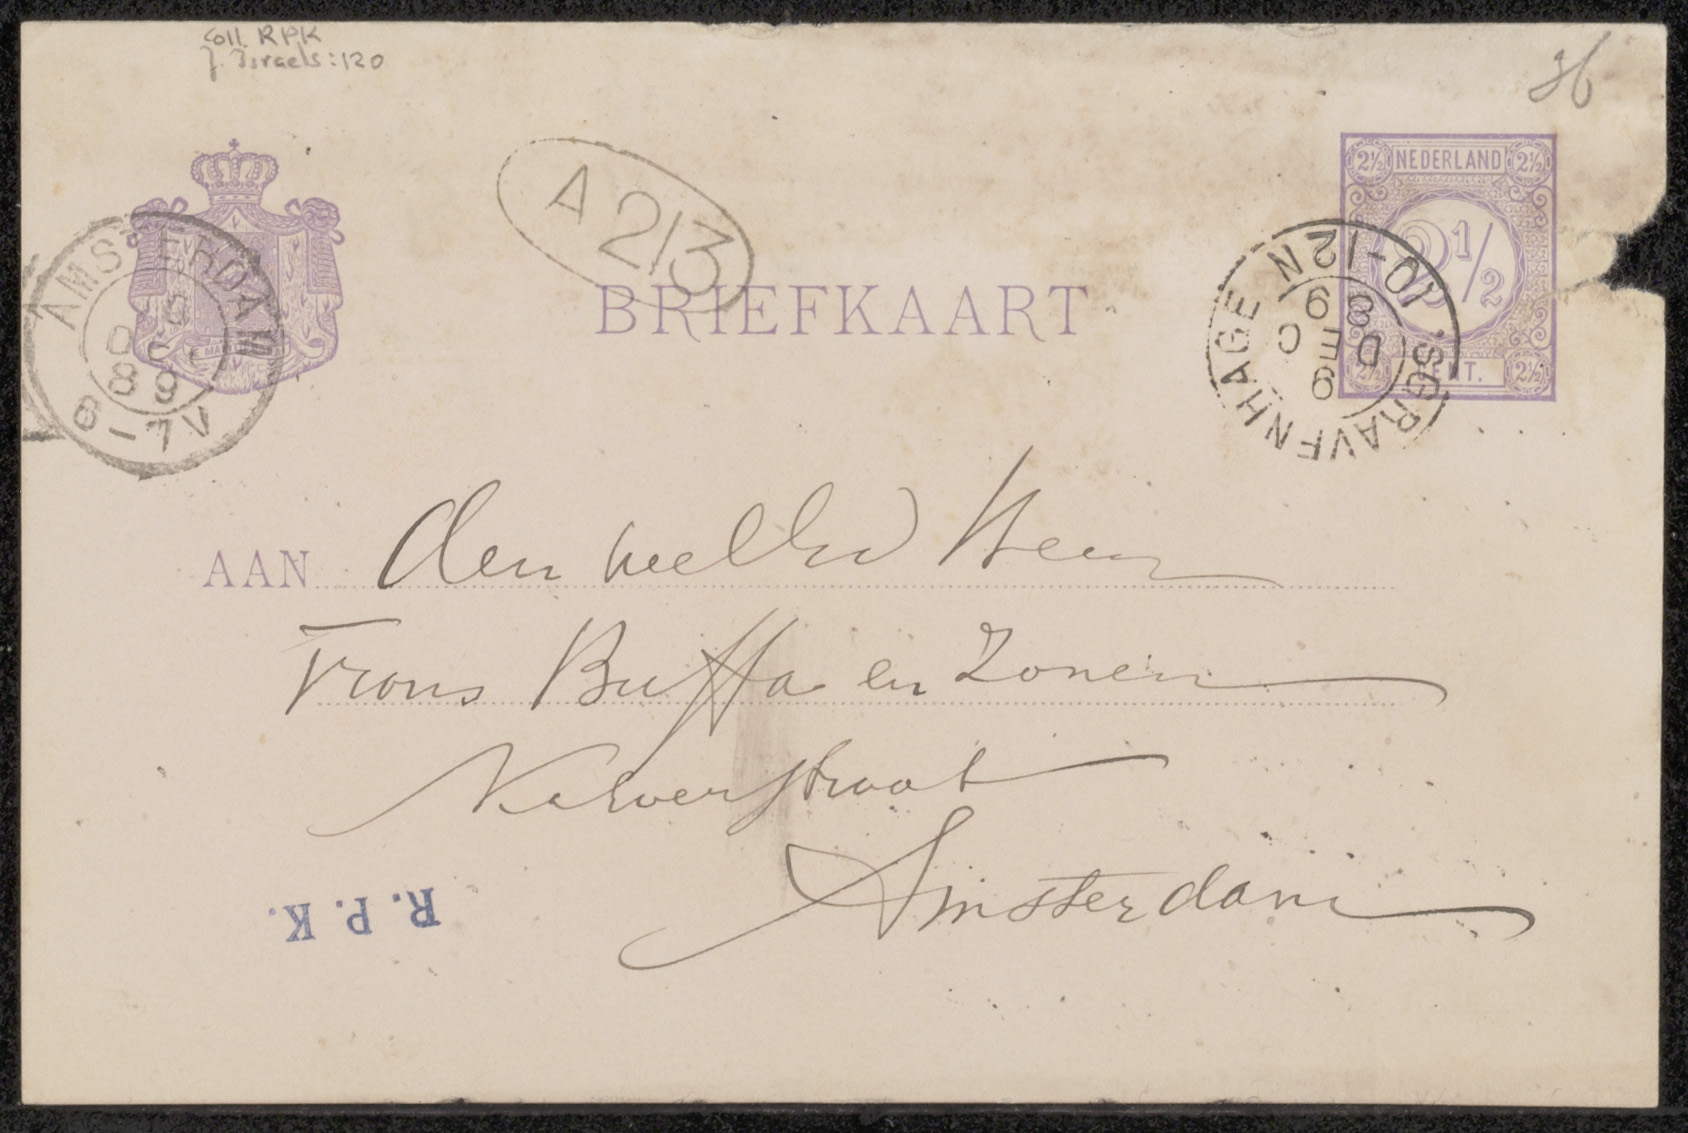 Coll. RPK
J. Israels: 120
36
NEDERLAND
2½ 2½
2½
2½ CENT. 2½
A 213
AMSTERDAM
DEC
89
6-7V
'SGRAVENHAGE
10-12N
9
DEC
89
BRIEFKAART
AAN den Heer
Frans Buffa en Zonen
Kalverstraat
Amsterdam
R. P. K.